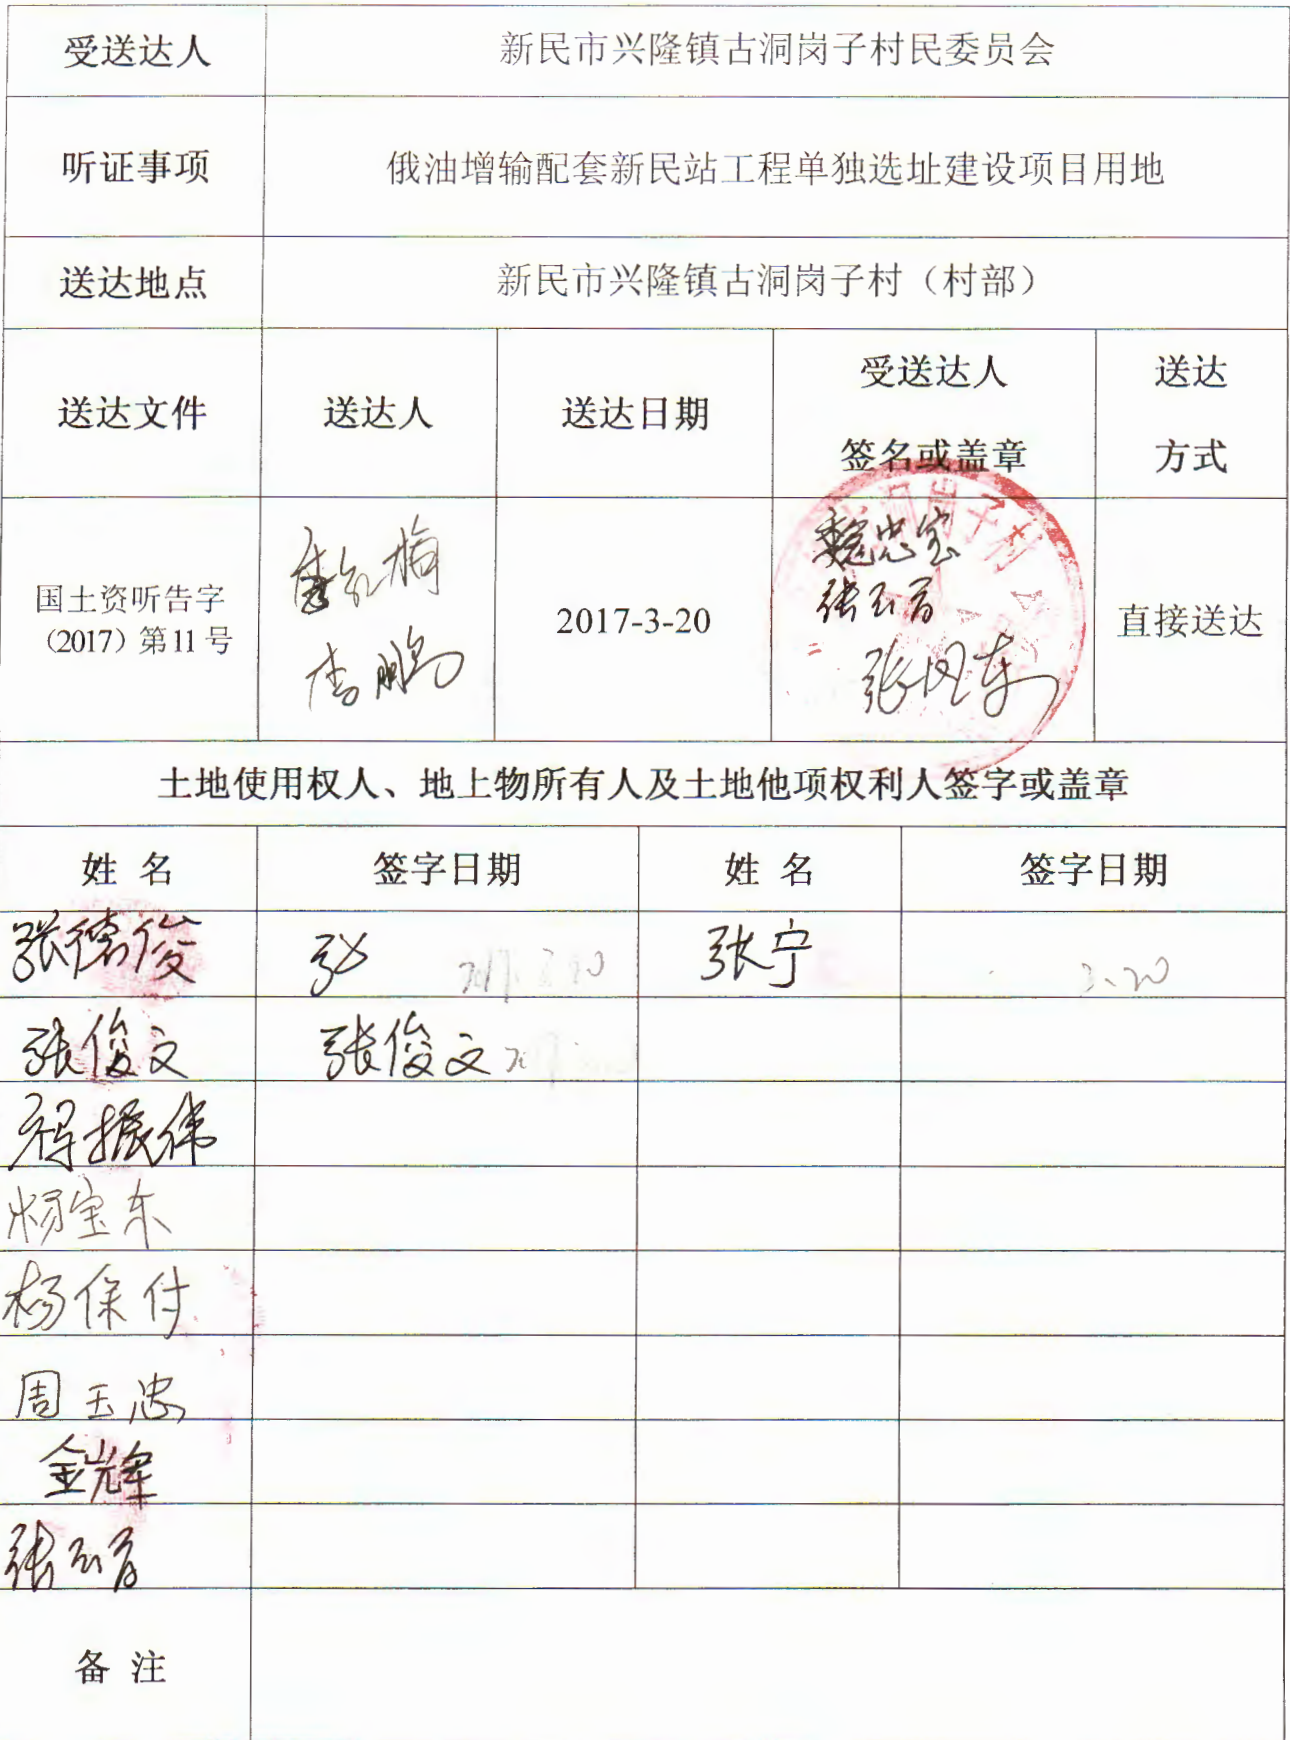 受送达人 新民市兴隆镇古洞岗子村民委员会
听证事项 俄油增输配套新民站工程单独选址建设项目用地
送达地点 新民市兴隆镇古洞岗子村（村部）
送达文件 送达人 送达日期 受送达人 签名或盖章 送达 方式
国土资听告字
（2017）第11号
李鹏
2017-3-20
魏忠宝
张凤东
直接送达
土地使用权人、地上物所有人及土地他项权利人签字或盖章
姓 名 签字日期 姓 名 签字日期
张德俊 张宁 3.20
张俊文 张俊文
振伟
杨宝东
杨保付
周玉忠
金辉
备 注